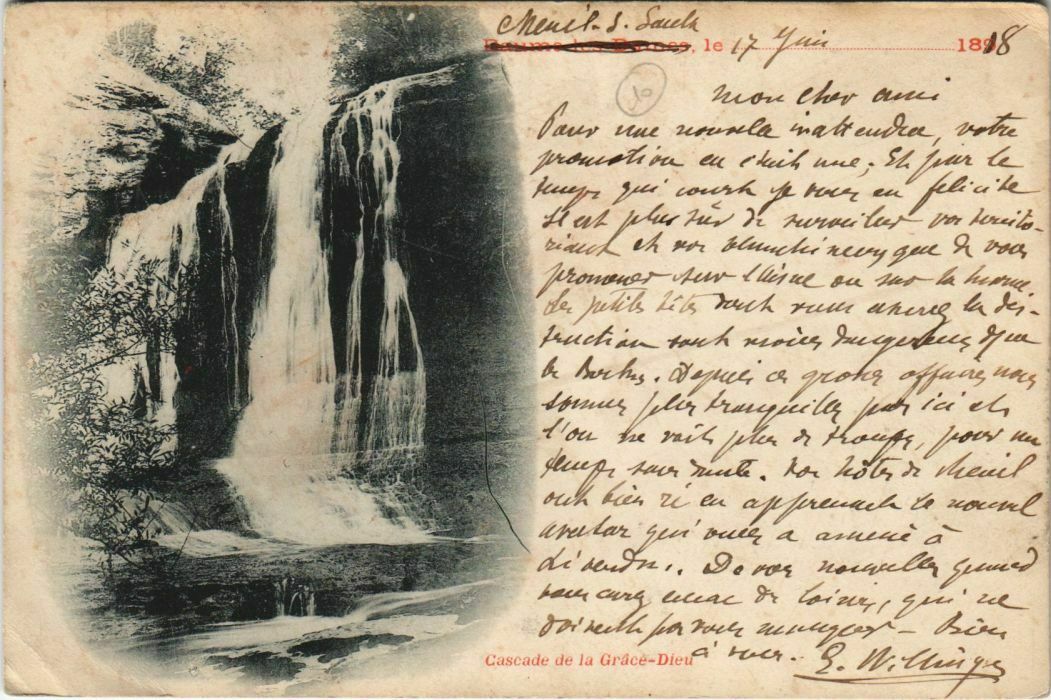 Mesnil-s. Saulx
Baume-les-Dames, le 17 Juin 1918
10
Mon cher ami
Pour une nouvelle inattendue, votre
promotion en est une. Et par le
temps qui court je vous en félicite
Il est plus sûr de surveiller vos
et vos que de vous
promener sur l'Aisne ou sur la Marne.
Les petites bêtes dont vous la des-
truction sont moins dangereuses que
les Boches. Depuis ces affaires nous
sommes plus tranquilles par ici et
l'on ne voit plus de troupe, pour un
temps sans doute. Vos hôtes de Mesnil
ont bien ri en apprenant le nouvel
avatar qui vous a amené à
De vos nouvelles quand
vous avez de loisirs, qui ne
doivent pas vous manquer – Bien
à vous. E. Willinger
Cascade de la Grâce-Dieu